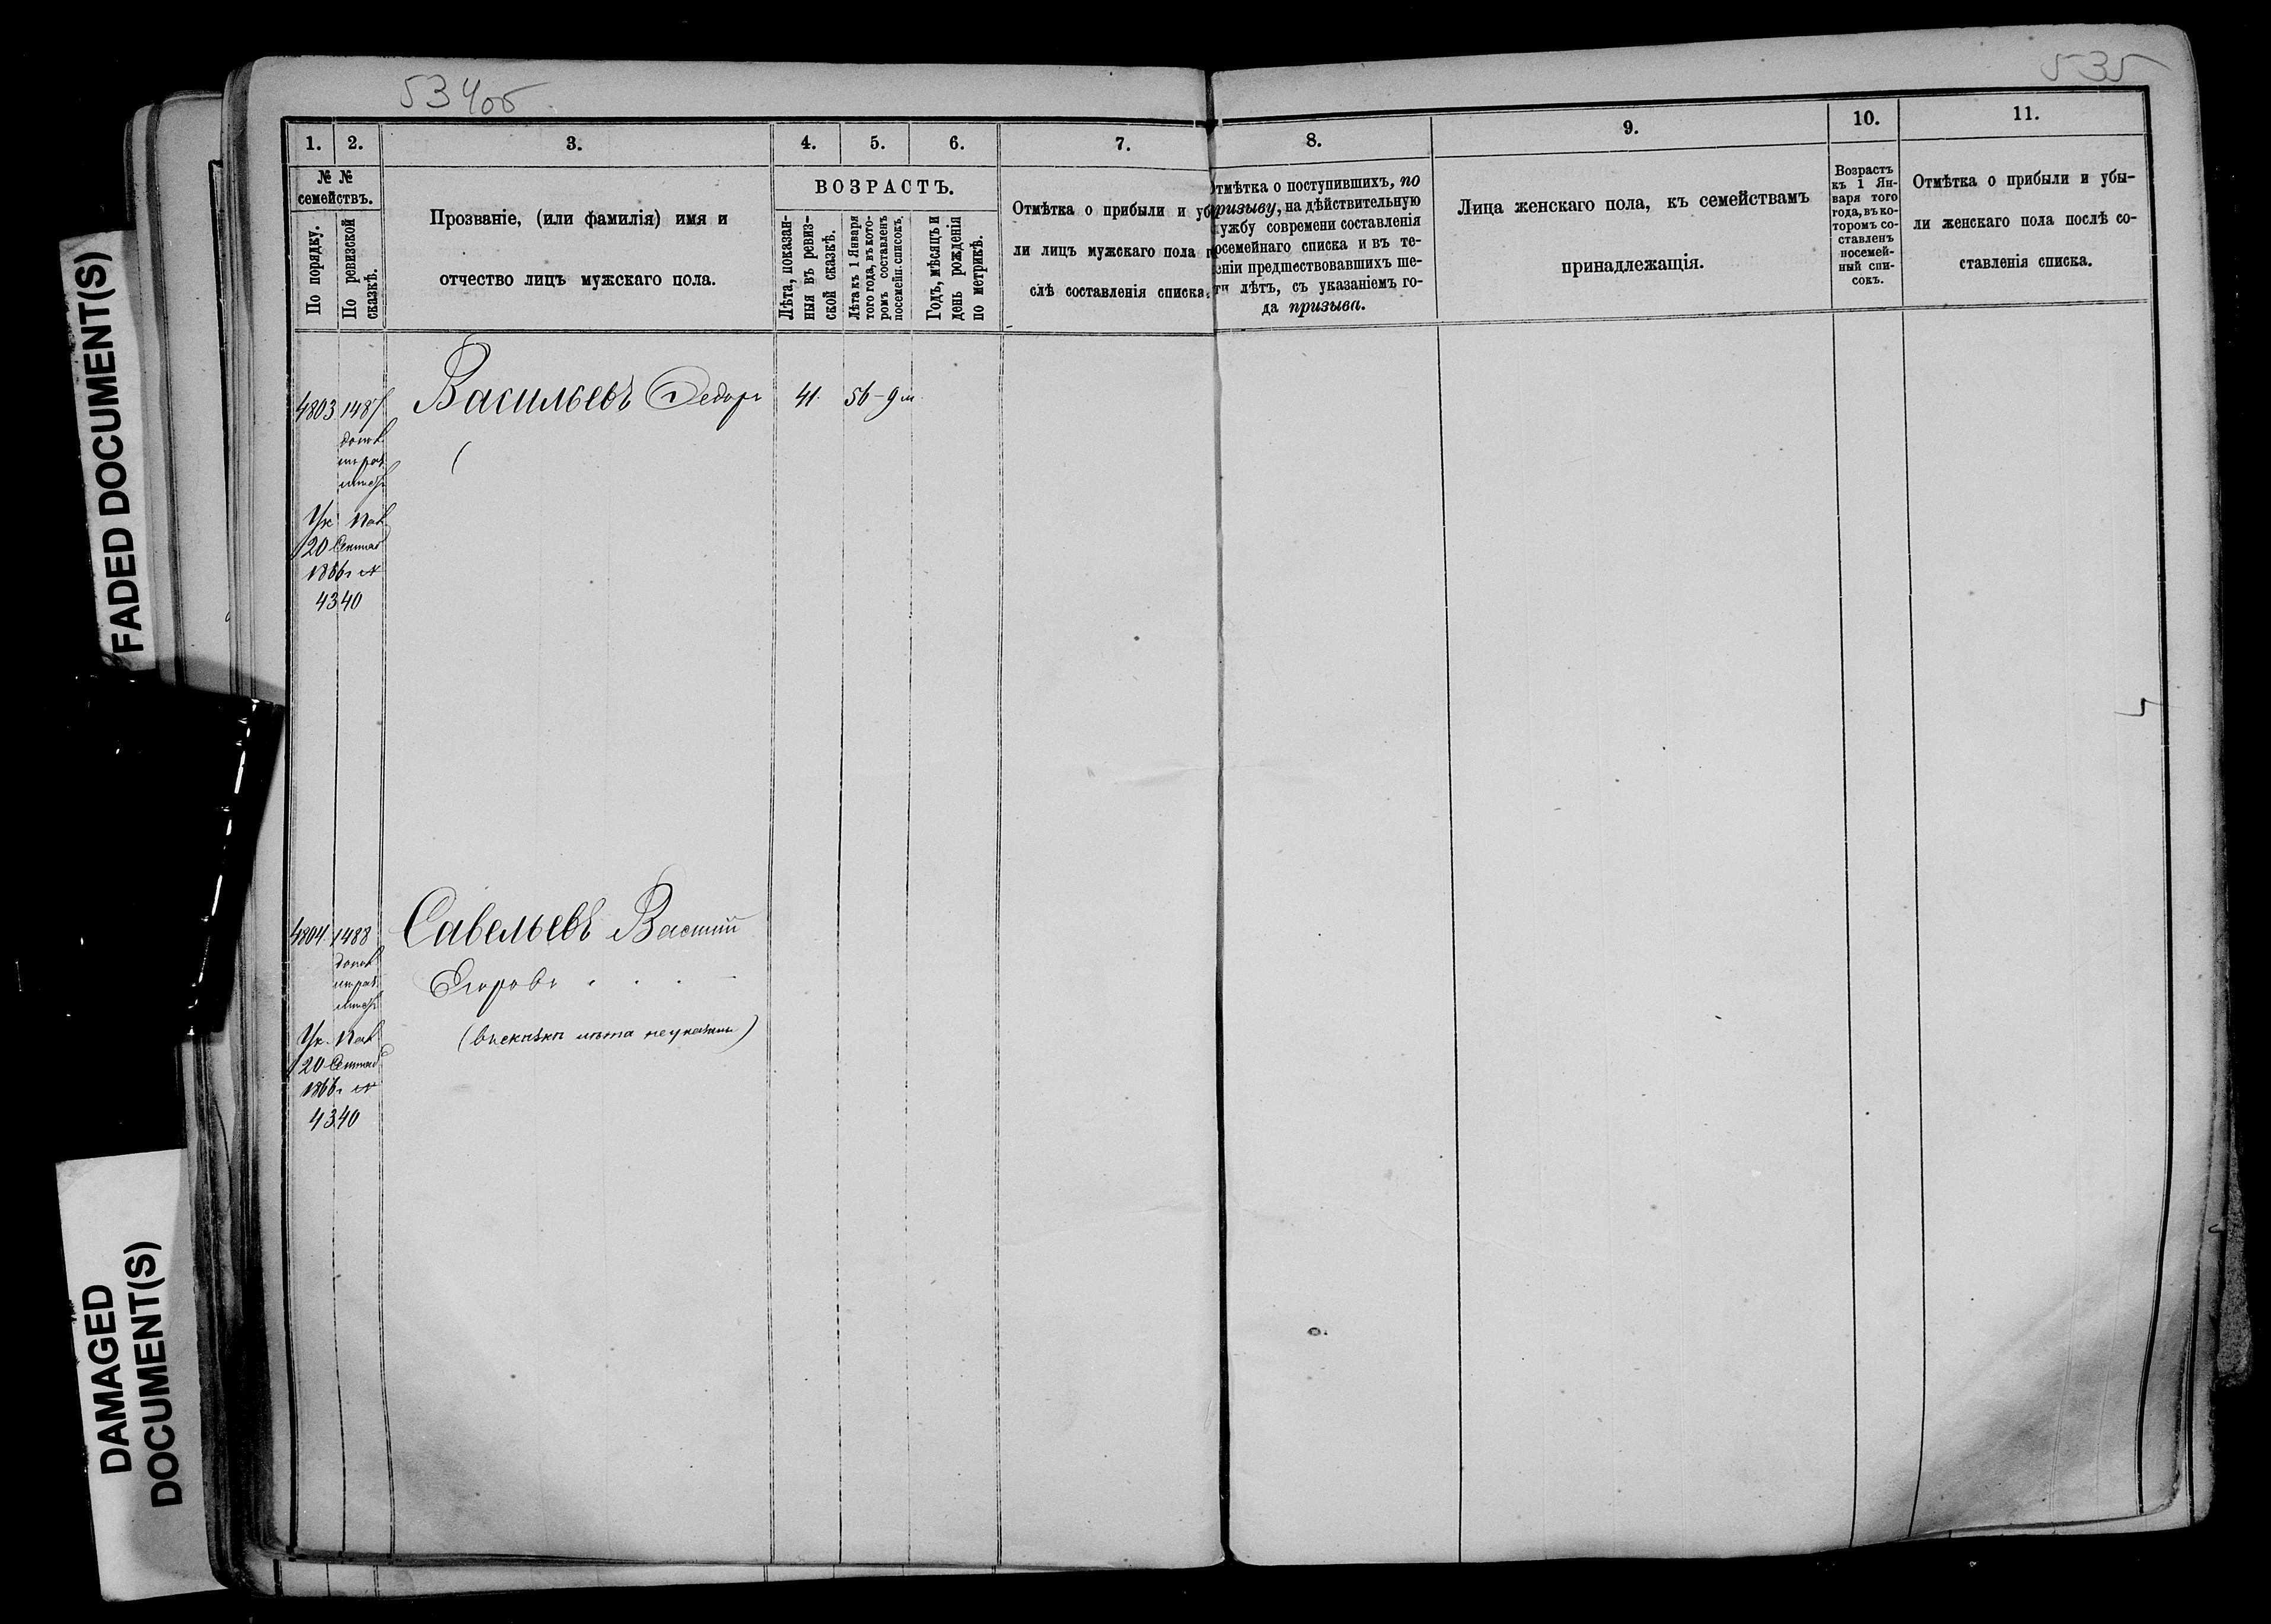 534об
535
1.
2.
3.
4.
5.
6.
7.
8.
9.
10.
11.
№ №
семействъ.
По порядку.
По ревизской
сказкѣ.
Прозваніе, (или фамилія) имя и
отчество лицъ мужскаго пола.
ВОЗРАСТЪ.
Лѣта, показан-
ныя въ ревиз-
ской сказкѣ.
Лѣта къ 1 Января
того года, въ кото-
ромъ составленъ
посемейн. списокъ.
Годъ, мѣсяцъ и
день рожденія
по метрикѣ.
Отмѣтка о прибыли и уб
ли лицъ мужскаго пола п
слѣ составленія списка.
Отмѣтка о поступившихъ, по
призыву, на дѣйствительную
службу современи составленія
посемейнаго списка и въ те-
еніи предшествовавшихъ ше-
ти лѣтъ, съ указаніемъ го-
да призыва.
Лица женскаго пола, къ семействамъ
принадлежащія.
Возрастъ
къ 1 Ян-
варя того
года, въ ко-
торомъ со-
ставленъ
посемей-
ный спи-
сокъ.
Отмѣтка о прибыли и убы-
ли женскаго пола послѣ со-
ставленія списка.
4803 1487 Васильевъ Федоръ 41. 56-9 м.
Ук.
20
1866 г. №
4340
4804 1488 Савельевъ Василій
Егоровъ
Ук.
20
1866 г. №
4340
FADED DOCUMENT(S)
DAMAGED
DOCUMENT(S)